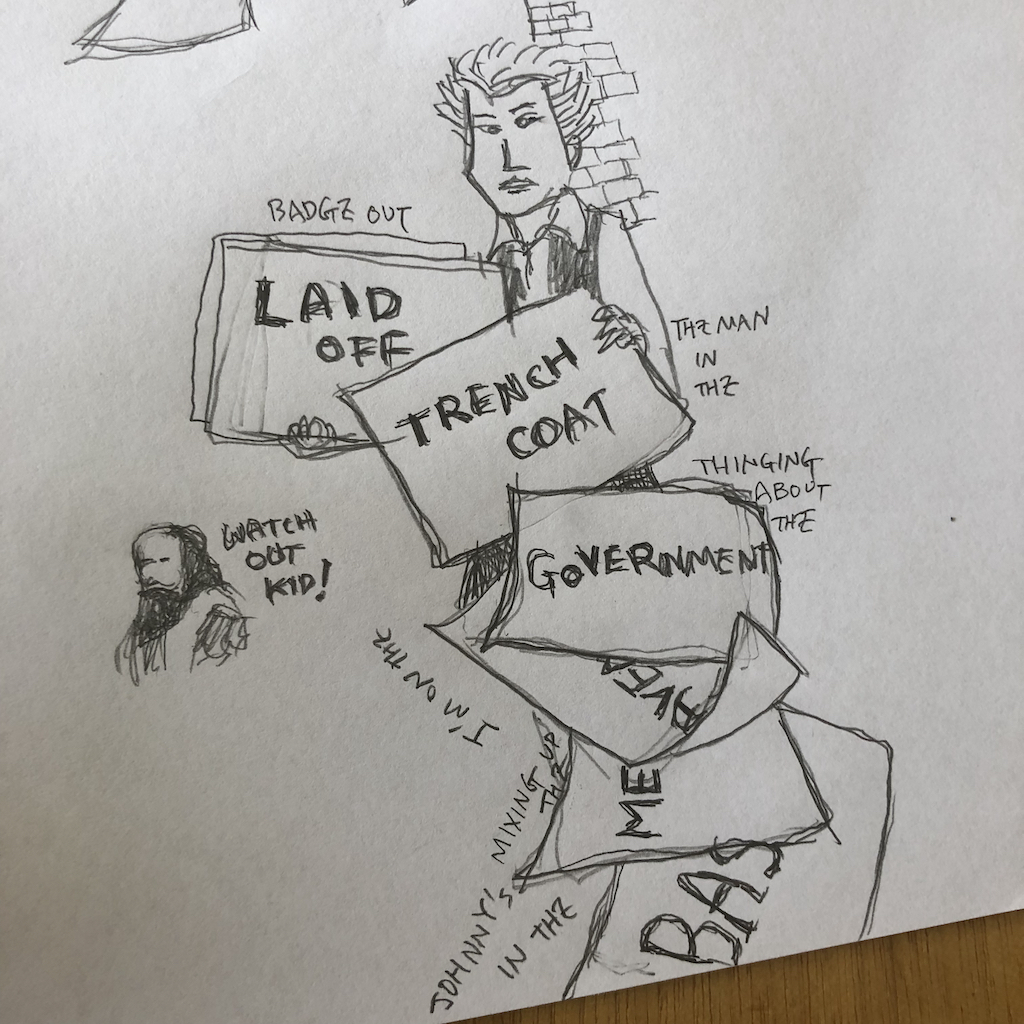 BADGE OUT
LAID
OFF
THE MAN
IN
THE
TRENCH
COAT
THINGING
ABOUT
THE
GOVERNMENT
WATCH
OUT
KID!
I'M ON THE
MIXING UP
THE
ME
JOHNNY'S
IN THE
BAS